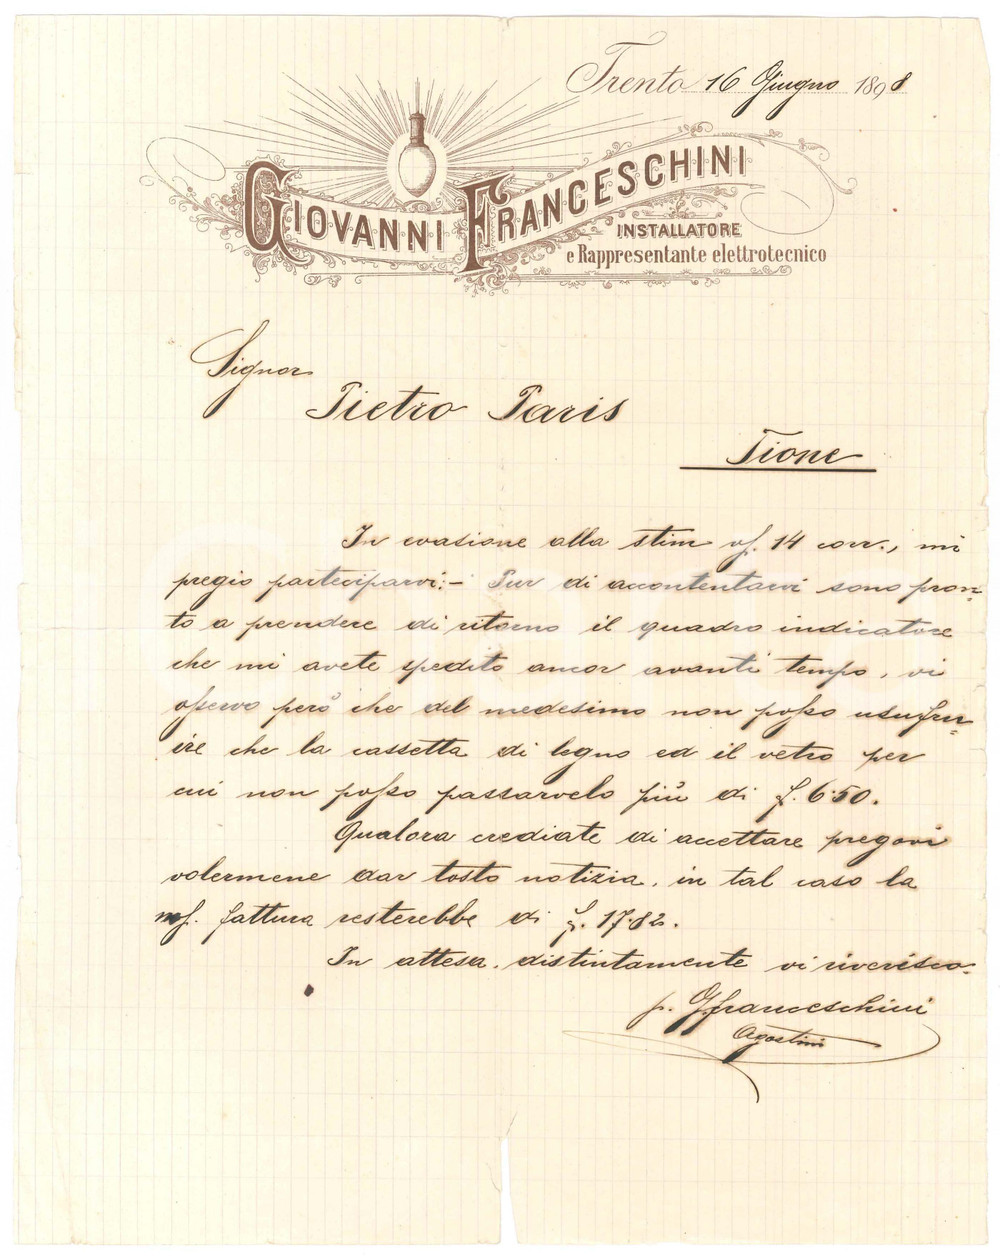 Trento 16 Giugno 1898
GIOVANNI FRANCESCHINI
INSTALLATORE
e Rappresentante elettrotecnico
Signor
Pietro Paris
Tione
In evasione alla stim vs. 14 corr., mi
pregio parteciparvi:- Pur di accontentarvi sono pron=
to a prendere di ritorno il quadro indicatore
che mi avete spedito ancor avanti tempo, vi
osservo però che del medesimo non posso usufru=
ire che la cassetta di legno ed il vetro per
cui non posso passarvelo più di f. 6.50.
Qualora crediate di accettare pregovi
volermene dar tosto notizia, in tal caso la
fattura resterebbe di f. 17.82.
In attesa, distintamente vi riverisco.
p. GFranceschini
Agostini